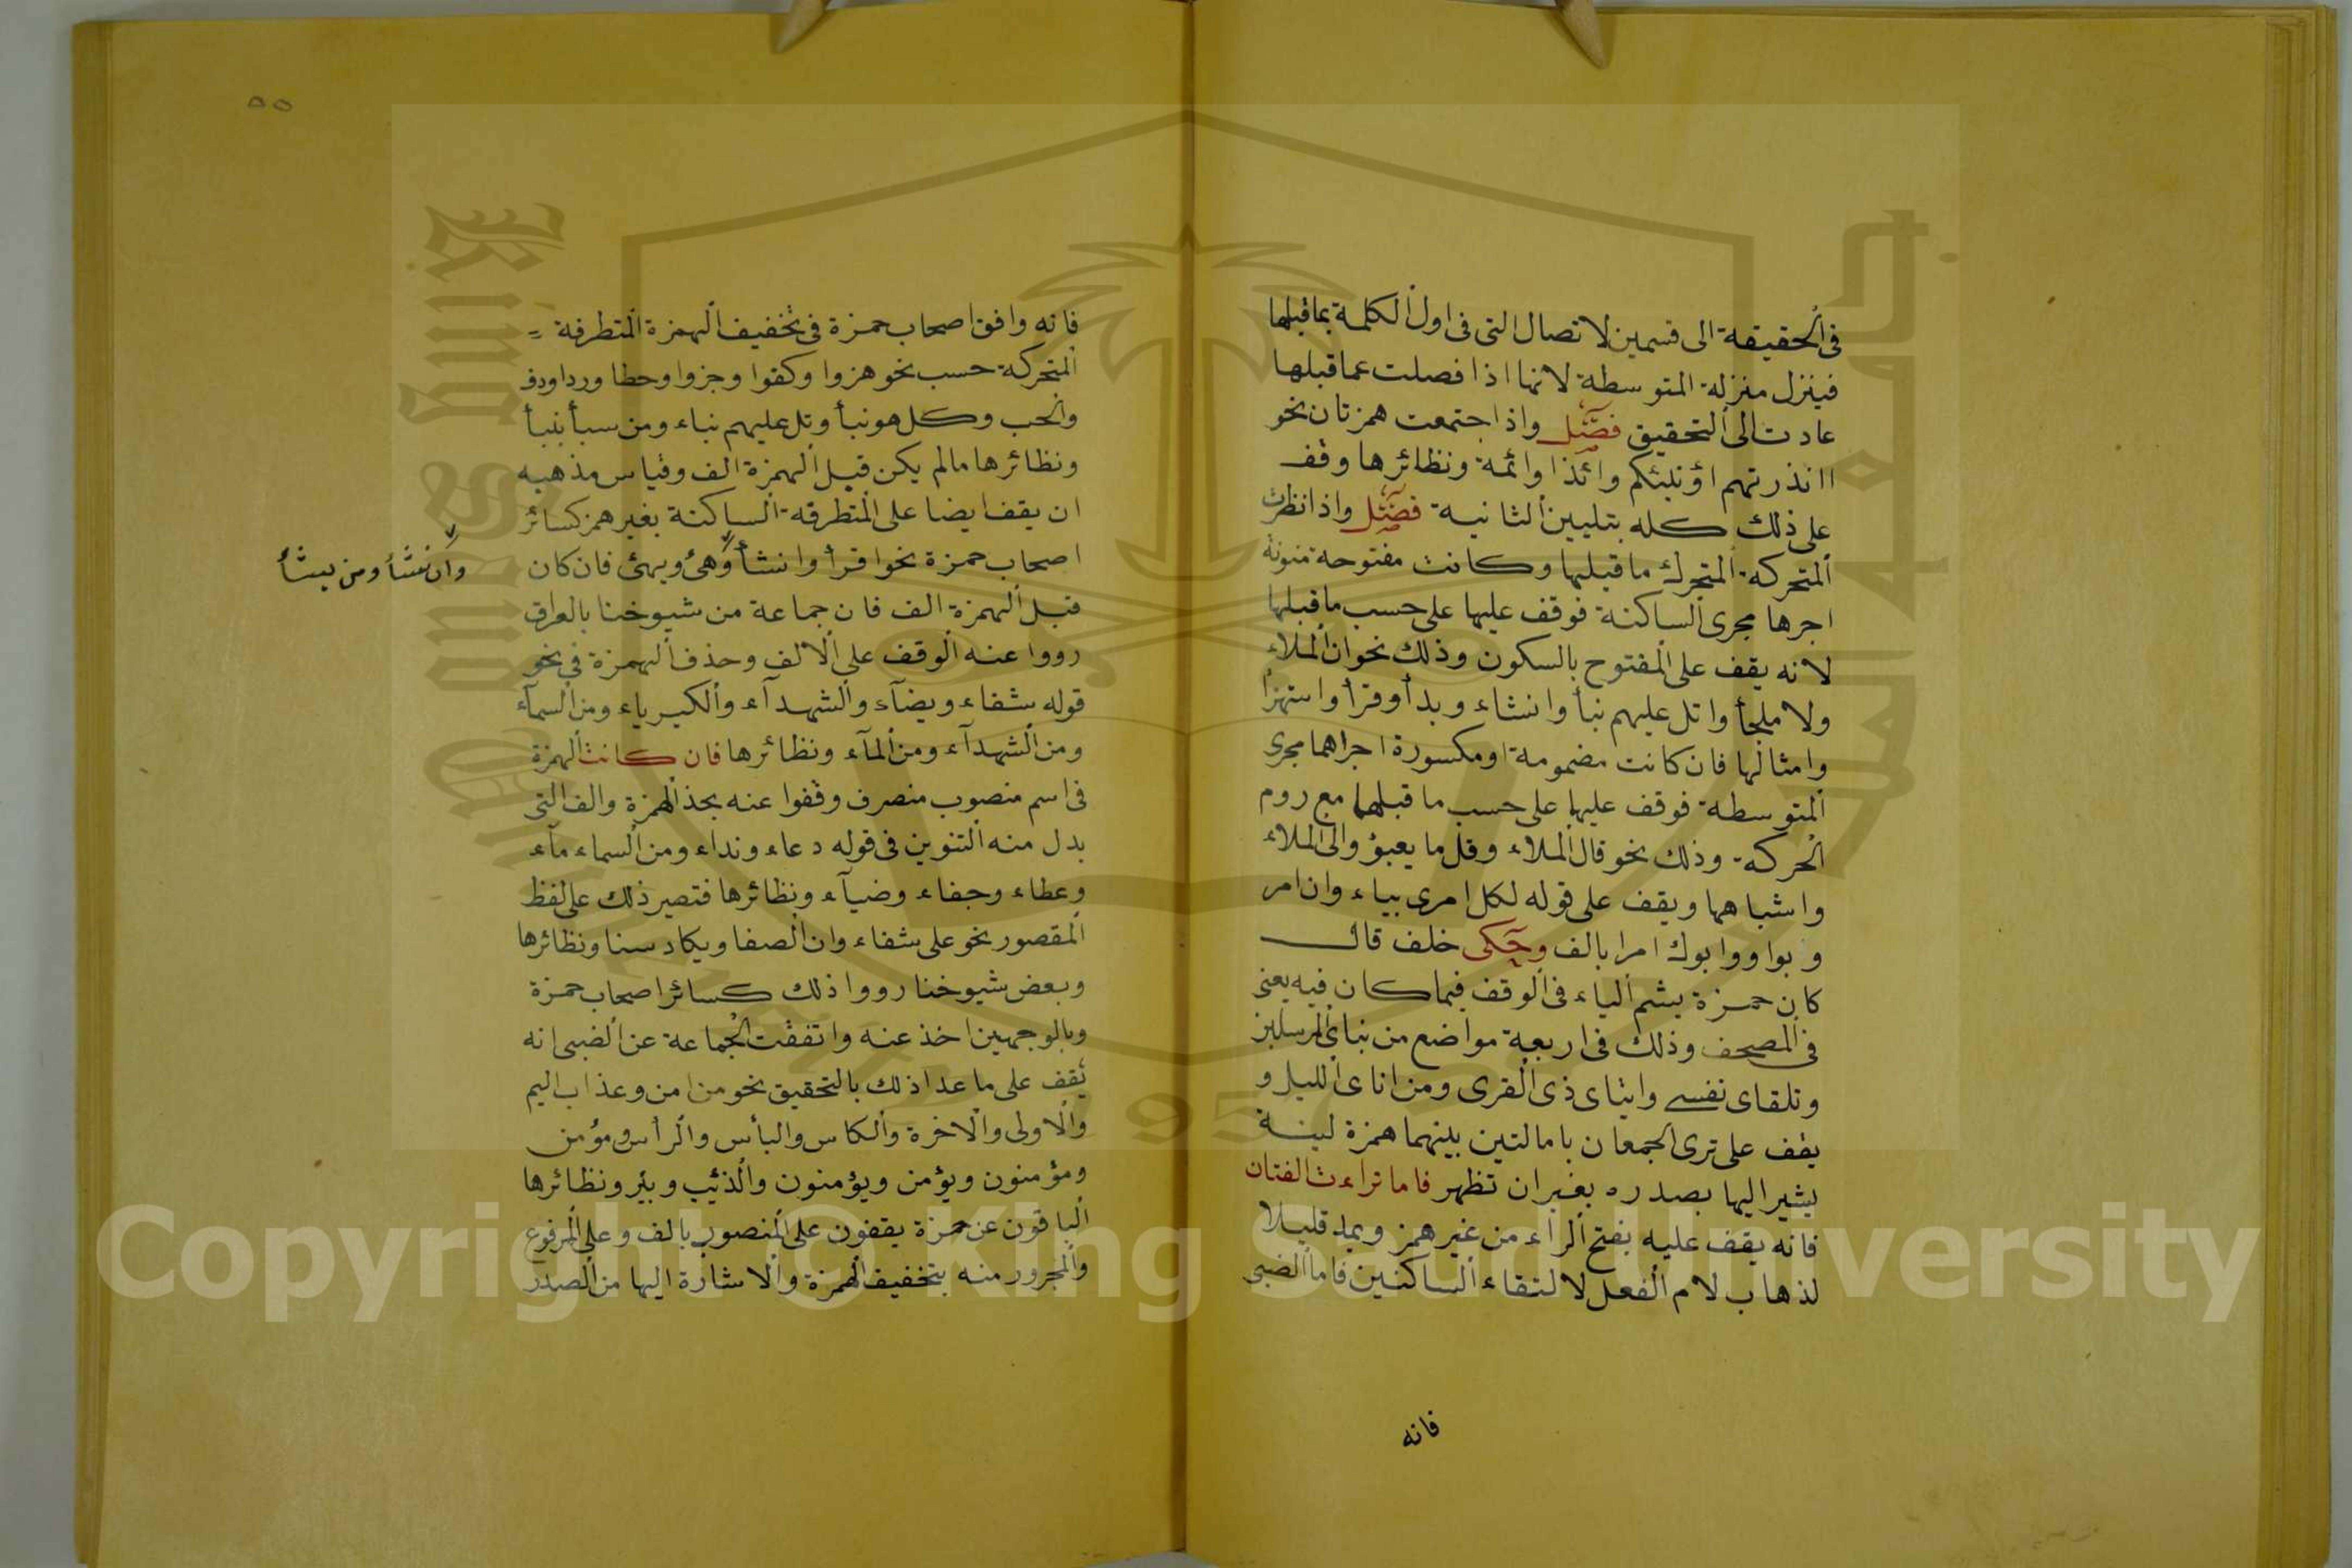 فى الحقيقة الى قسمين لاتصال التى فى اول الكلمة بما قبلها
فينزل منزلة المتوسطة لانها اذا فصلت عما قبلها
عادت الى التحقيق فصل واذا اجتمعت همزتان نحو
اانذرتهم اؤنبئكم وائذا وائمة ونظائرها وقف
على ذلك كله بتليين الثانية فصل واذا نظرت
المتحركة المتحرك ما قبلها وكانت مفتوحة منونة
اجرها مجرى الساكنة فوقف عليها على حسب ما قبلها
لانه يقف على المفتوح بالسكون وذلك نحو ان الملاء
ولا ملجأ واتل عليهم نبأ وانشاء وبدأ وقرأ واستهزأ
وامثالها فان كانت مضمومة او مكسورة اجراهما مجرى
المتوسطة فوقف عليها على حسب ما قبلهما مع روم
الحركة وذلك نحو قال الملاء وقل ما يعبؤ والى الملاء
واشباهما ويقف على قوله لكل امرى بياء وان امر
وبواو وابوك امرا بالف وحكى خلف قال
كان حمزة يشم الياء فى الوقف فيما كان فيه يعنى
فى المصحف وذلك فى اربعة مواضع من نبائ المرسلين
وتلقاى نفسى وايتاى ذى القربى ومن اناى الليل و
يقف على ترى الجمعان بامالتين بينهما همزة لينة
يشير اليها بصدره بغير ان تظهر فاما تراءت الفئتان
فانه يقف عليه بفتح الراء من غير همز ويمد قليلا
لذهاب لام الفعل لالتقاء الساكنين فاما الضبى
فانه
٥٥
فانه وافق اصحاب حمزة فى تخفيف الهمزة المتطرفة
المتحركة حسب نحو هزوا وكفوا وجزوا وحطا وردا ودف
والخب وكل هو نبأ وتل عليهم نباء ومن سبأ بنبأ
ونظائرها مالم يكن قبل الهمزة الف وقياس مذهبه
ان يقف ايضا على المتطرفة الساكنة بغير همز كسائر
اصحاب حمزة نحو اقرأ وانشأ وهئ ويهئ فان كان
وان نشأ ومن يشأ
قبل الهمزة الف فان جماعة من شيوخنا بالعراق
رووا عنه الوقف على الالف وحذف الهمزة فى نحو
قوله شفاء ويضآء والشهدآء والكبرياء ومن السمآء
ومن الشهدآء ومن المآء ونظائرها فان كانت الهمزة
فى اسم منصوب منصرف وقفوا عنه بحذ الهمزة والف التى
بدل منه التنوين فى قوله دعاء ونداء ومن السماء مآء
وعطاء وجفاء وضيآء ونظائرها فتصير ذلك على لفظ
المقصور نحو على شفاء وان الصفا ويكاد سنا ونظائرها
وبعض شيوخنا رووا ذلك كسائر اصحاب حمزة
وبالوجهين اخذ عنه واتفقت الجماعة عن الضبى انه
يقف على ما عدا ذلك بالتحقيق نحو من امن وعذاب اليم
والاولى والاخرة والكاس والبأس والرأس ومؤمن
ومؤمنون ويؤمن ويؤمنون والذئيب وبئر ونظائرها
الباقون عن حمزة يقفون على المنصوب بالف وعلى المرفوع
والمجرور منه بتخفيف الهمزة والاشارة اليها من الصدر
Copyright © King Saud University
1957